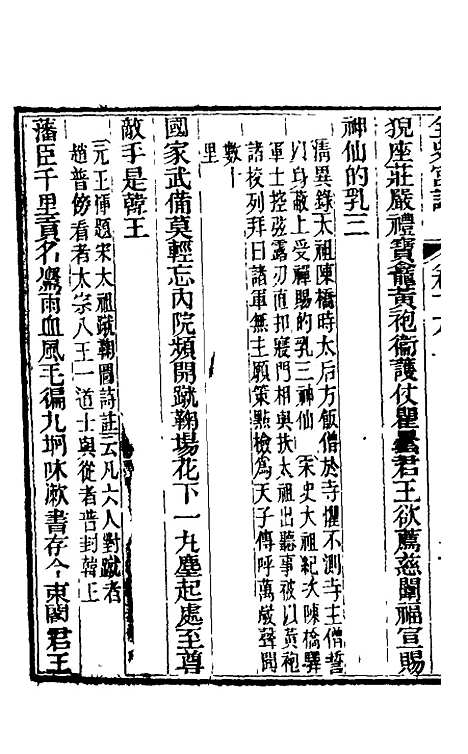 全史宮詞 卷十六
猊座莊嚴禮寶龕黃袍衛護仗瞿曇君王欲薦慈闈福宣賜
神仙的乳三
清異錄太祖陳橋時太后方飯僧於寺懼不測寺主僧誓
以身蔽上受禪賜的乳三神仙 宋史太祖紀次陳橋驛
軍士控弦露刃直扣寢門相與扶太祖出聽事被以黃袍
諸校列拜曰諸軍無主願策點檢為天子傳呼萬歲聲聞
數十
里
國家武備莫輕忘內院頻開蹴鞠場花下一丸塵起處至尊
敵手是韓王
元王惲題宋太祖蹴鞠圖詩註云凡六人對蹴者
趙普傍看者太宗八王一道士與從者普封韓王
藩臣千里貢名鷹雨血風毛徧九坰咏漱書存今東閣君王